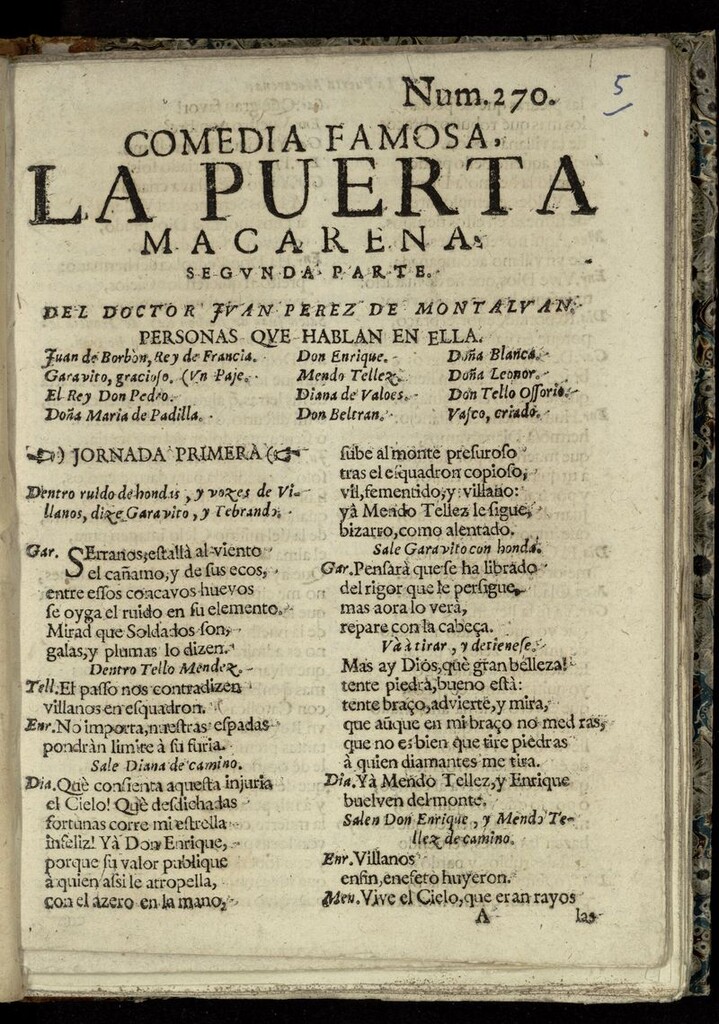 Num. 270.
5
COMEDIA FAMOSA,
LA PUERTA
MACARENA.
SEGVNDA PARTE.
DEL DOCTOR JVAN PEREZ DE MONTALVAN.
PERSONAS QVE HABLAN EN ELLA.
Juan de Borbon, Rey de Francia. Don Enrique. Doña Blanca.
Garavito, gracioso. (Vn Paje. Mendo Tellez. Doña Leonor.
El Rey Don Pedro. Diana de Valoes. Don Tello Ossorio.
Doña Maria de Padilla. Don Beltran. Vasco, criado.
JORNADA PRIMERA
Dentro ruido de hondas, y vozes de Vi-
llanos, dize Garavito, y Tebrando.
Gar. SErranos, estalla al viento
el cañamo, y de sus ecos,
entre essos concavos huevos
se oyga el ruido en su elemento.
Mirad que Soldados son,
galas, y plumas lo dizen.
Dentro Tello Mendez.
Tell. El passo nos contradizen
villanos en esquadron.
Enr. No importa, nuestras espadas
pondràn limite à su furia.
Sale Diana de camino.
Dia. Què consienta aquesta injuria
el Cielo! Què desdichadas
fortunas corre mi estrella
infeliz! Yà Don Enrique,
porque su valor publique
à quien assi le atropella,
con el azero en la mano,
sube al monte presuroso
tras el esquadron copioso,
vil, fementido, y villano:
yà Mendo Tellez le sigue,
bizarro, como alentado.
Sale Garavito con honda.
Gar. Pensarà que se ha librado
del rigor que le persigue,
mas aora lo verà,
repare con la cabeça.
Và à tirar, y detienese.
Mas ay Dios, què gran belleza!
tente piedra, bueno està:
tente braço, advierte, y mira,
que aũque en mi braço no med ras,
que no es bien que tire piedras
à quien diamantes me tira.
Dia. Yà Mendo Tellez, y Enrique
buelven del monte.
Salen Don Enrique, y Mendo Te-
llez de camino.
Enr. Villanos
enfin, en efeto huyeron.
Men. Vive el Cielo, que eran rayos
A las